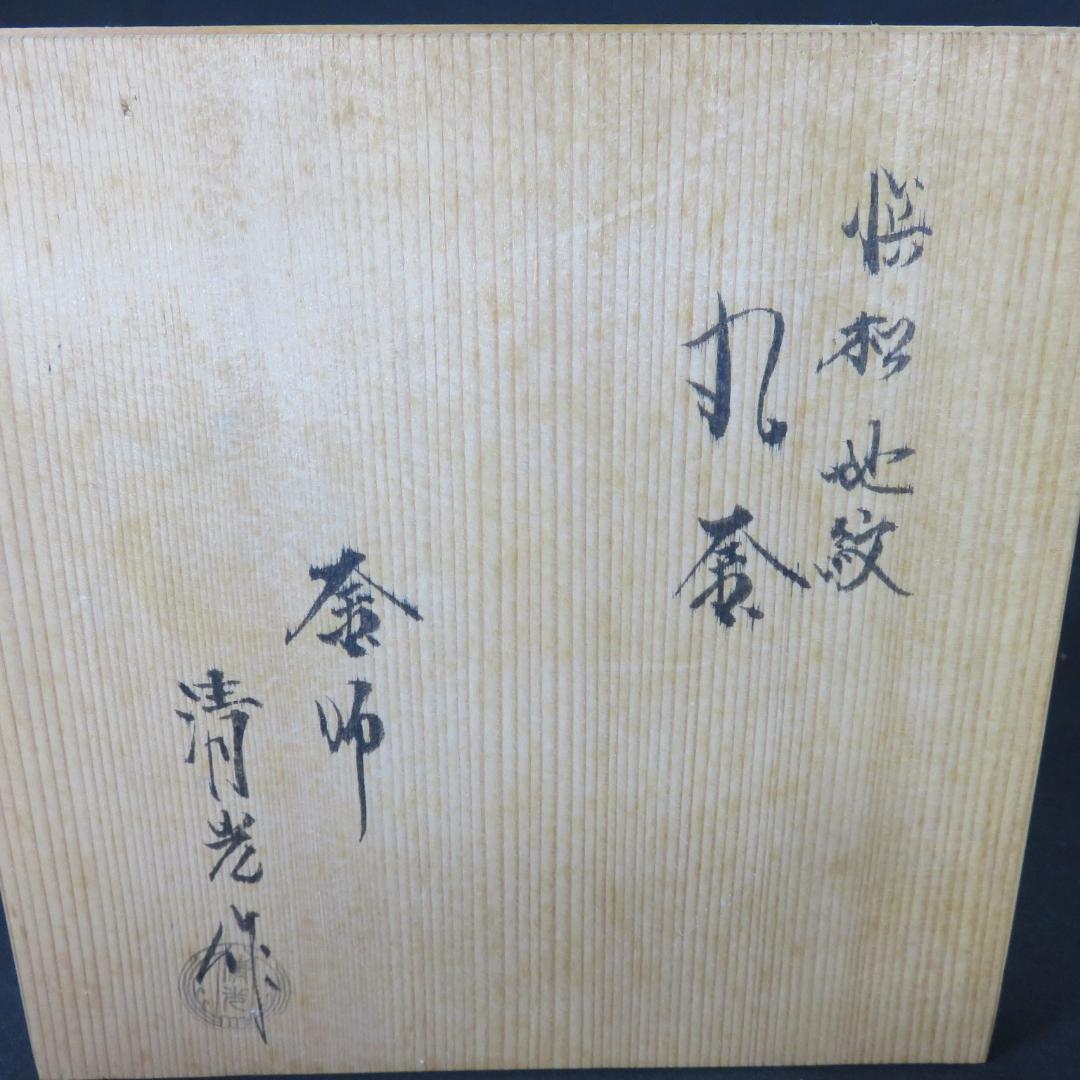 松地紋
丸釜
釜師
清光作